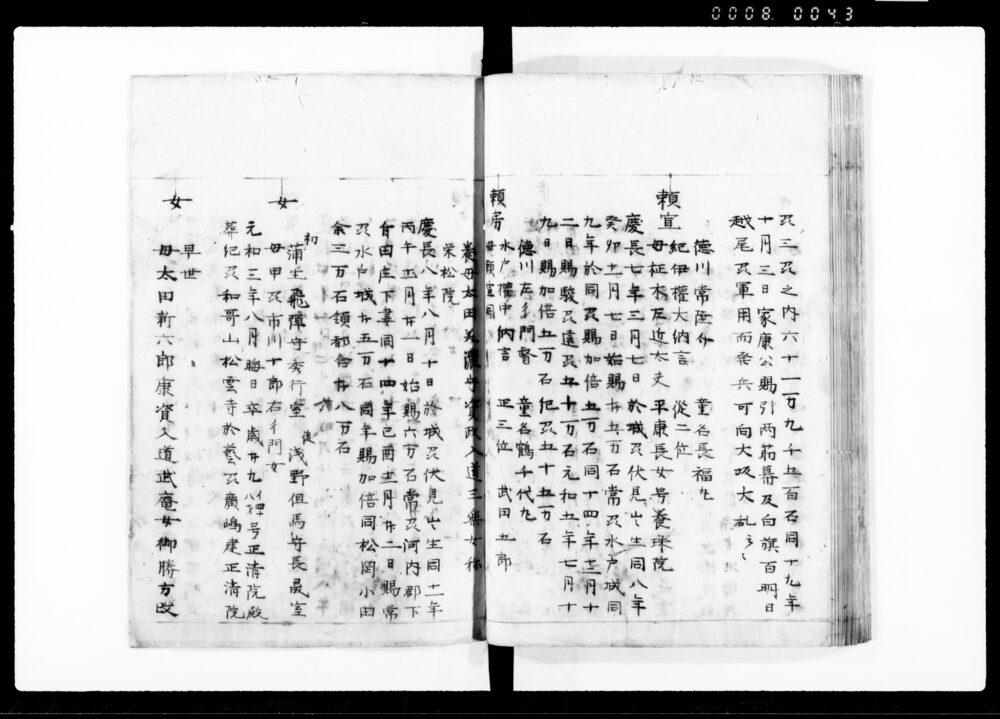 0008. 0043
及三及之内六十一万九千五百石同十九年
十月三日家康公賜引両筋幕及白旗百明日
越尾及軍用而集兵可向大坂大乱
頼宣
徳川常陸介 童名長福丸
紀伊權大納言 從二位
母柾木左近太夫平康長女号養珠院
慶長七年三月七日於城及伏見出生同八年
癸卯十一月七日始賜廿五万石常及水戸城同
九年於同及賜加倍五万石同十四年十二月十
二日賜駿及遠及五十万石元和五年七月十
九日賜加倍五万石紀及五十五万石
頼房
徳川左衛門督 童名鶴千代丸
水戸權中納言 正三位 武田五郎
母頼宣同
養母太田美濃守資政入道三樂女称
栄松院
慶長八年八月十日於城及伏見出生同十一年
丙午十二月廿一日始賜六万石常及河内郡下
自田庄下妻同十四年己酉十二月廿二日賜常
及水戸城廿五万石同年賜加倍同松岡小田
余三万石領都合廿八万石
女
初蒲生飛騨守秀行室 後浅野但馬守長晟室
母甲及市川十郎右衛門女
元和三年八月晦日卒歳廿九 号正清院殿
葬紀及和哥山松雲寺於藝及廣嶋建正清院
女
早世
母太田新六郎康資入道武庵女御勝方改